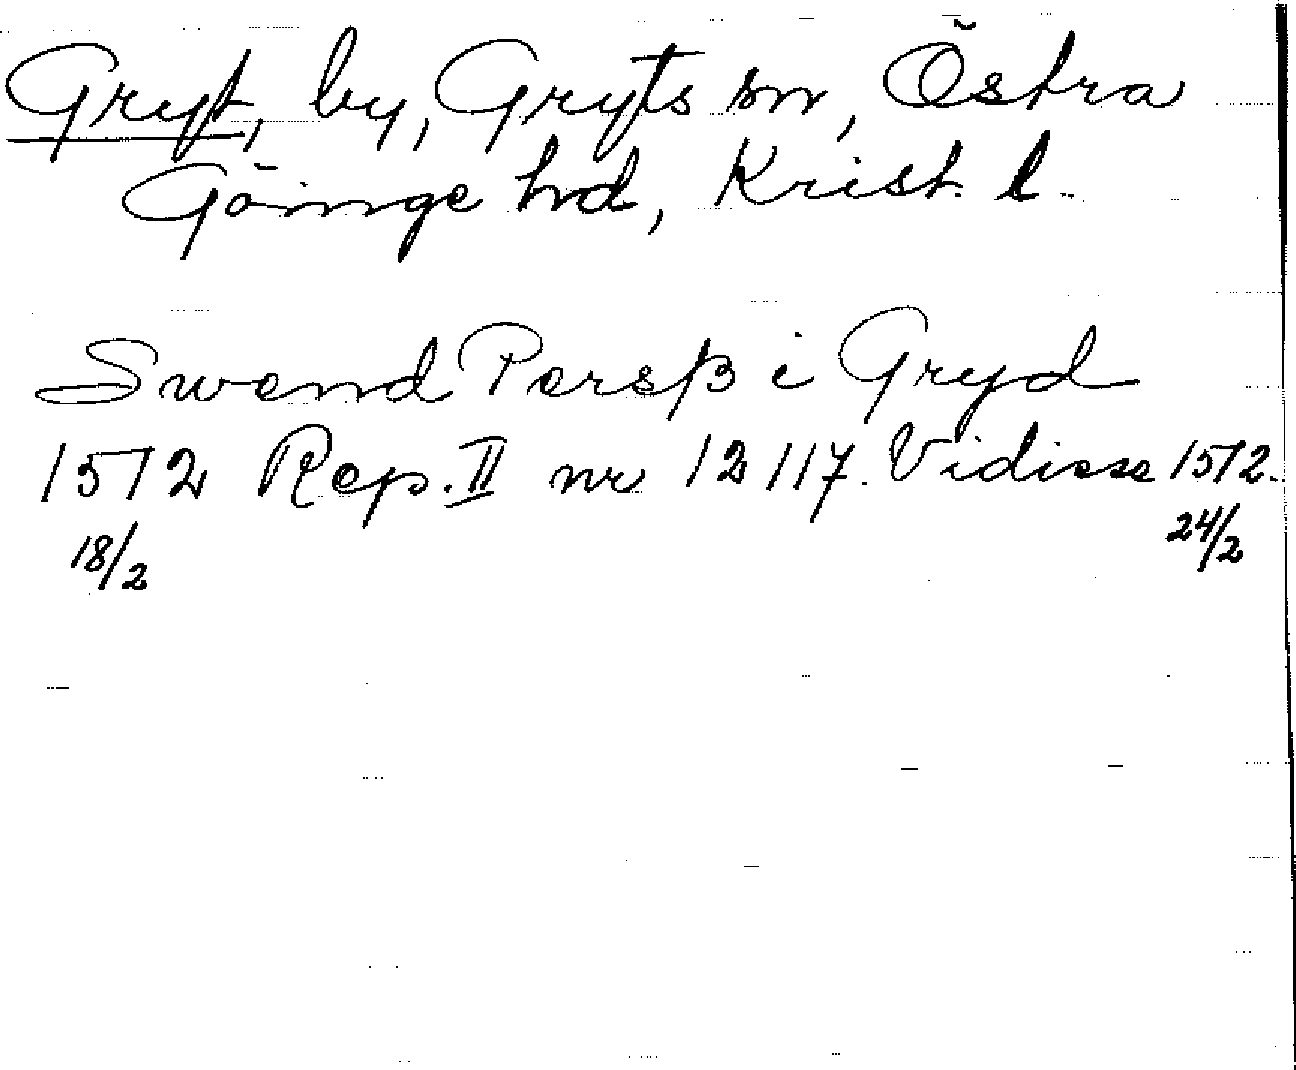 Gryt, by, Gryts sn, Östra
Göinge hd, Krist. l.
Swend Persß i Gryd
1512 Rep. II nr 12117. Vidisse 1512.
18/2 24/2